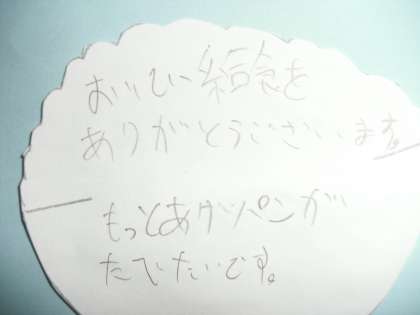 おいしい給食を
ありがとうございます。
もっとあげパンが
たべたいです。